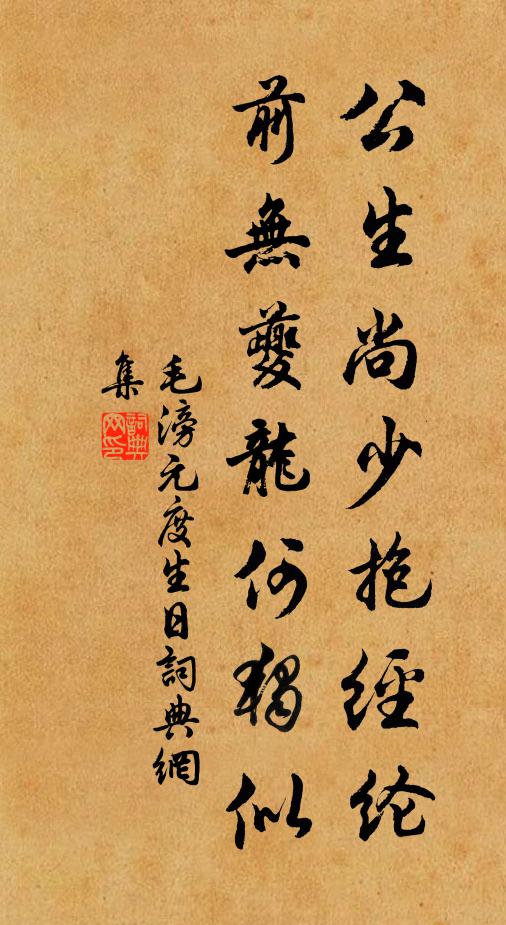 公生尚少抱經纶
前無夔龍何獨似
毛滂元度生日詞典網
集
詞典網印